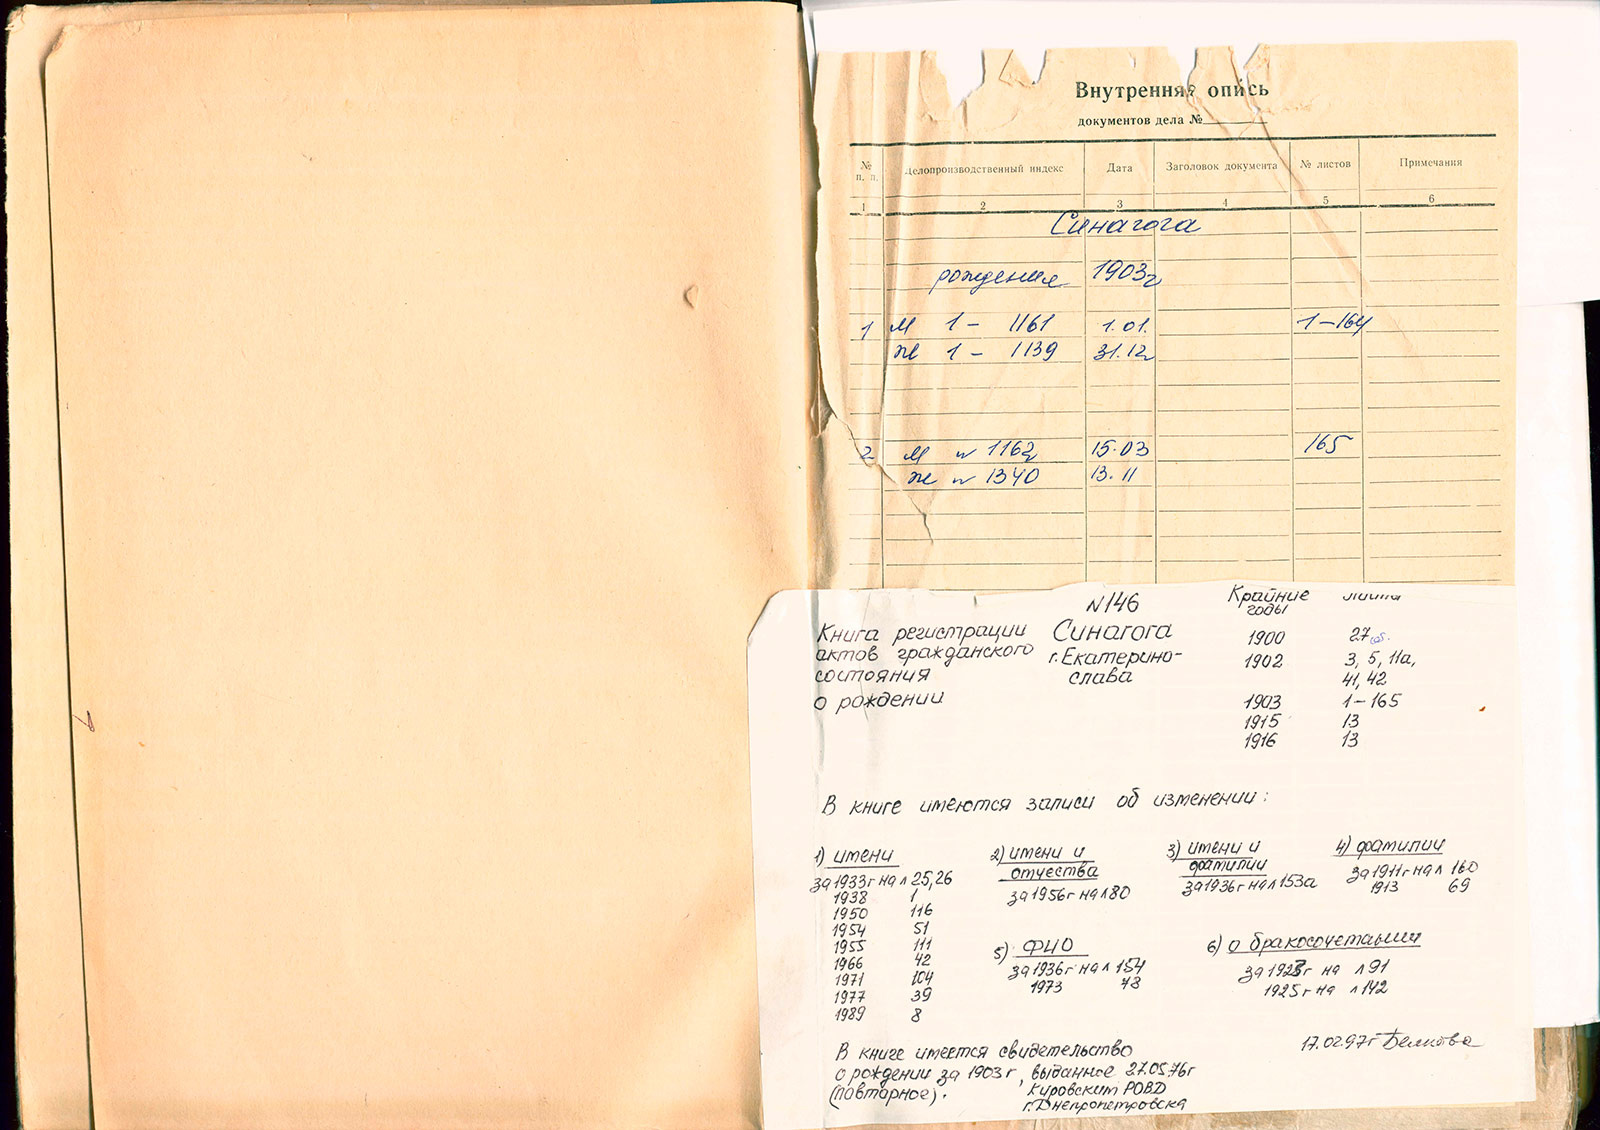 Внутренняя опись
документов дела №
№ п. п. Делопроизводственный индекс Дата Заголовок документа № листов Примечания
1 2 3 4 5 6
Синагога
рождения 1903г
1 м 1 - 1161 1.01. 1-164
ж 1 - 1139 31.12
2 м № 1162 15.03 165
ж № 1340 13.11
№146 Крайние годы
Книга регистрации Синагога 1900 27об.
актов гражданского г. Екатерино- 1902 3, 5, 11а,
состояния слава 41, 42
о рождении 1903 1-165
1915 13
1916 13
В книге имеются записи об изменении:
1) имени
за 1933г на л 25,26
1938 1
1950 116
1954 51
1955 111
1966 42
1971 104
1977 39
1989 8
2) имени и
отчества
за 1956г на л 80
3) имени и
фамилии
за 1936г на л 153а
4) фамилии
за 1911г на л 160
1913 69
5) ФИО
за 1936г на л 154
1973 78
6) о бракосочетании
за 1923г на л 91
1925г на л 142
17.02.97г
В книге имеется свидетельство
о рождении за 1903г, выданное 27.05.76г
(повторное). Кировским РОВД
г. Днепропетровска